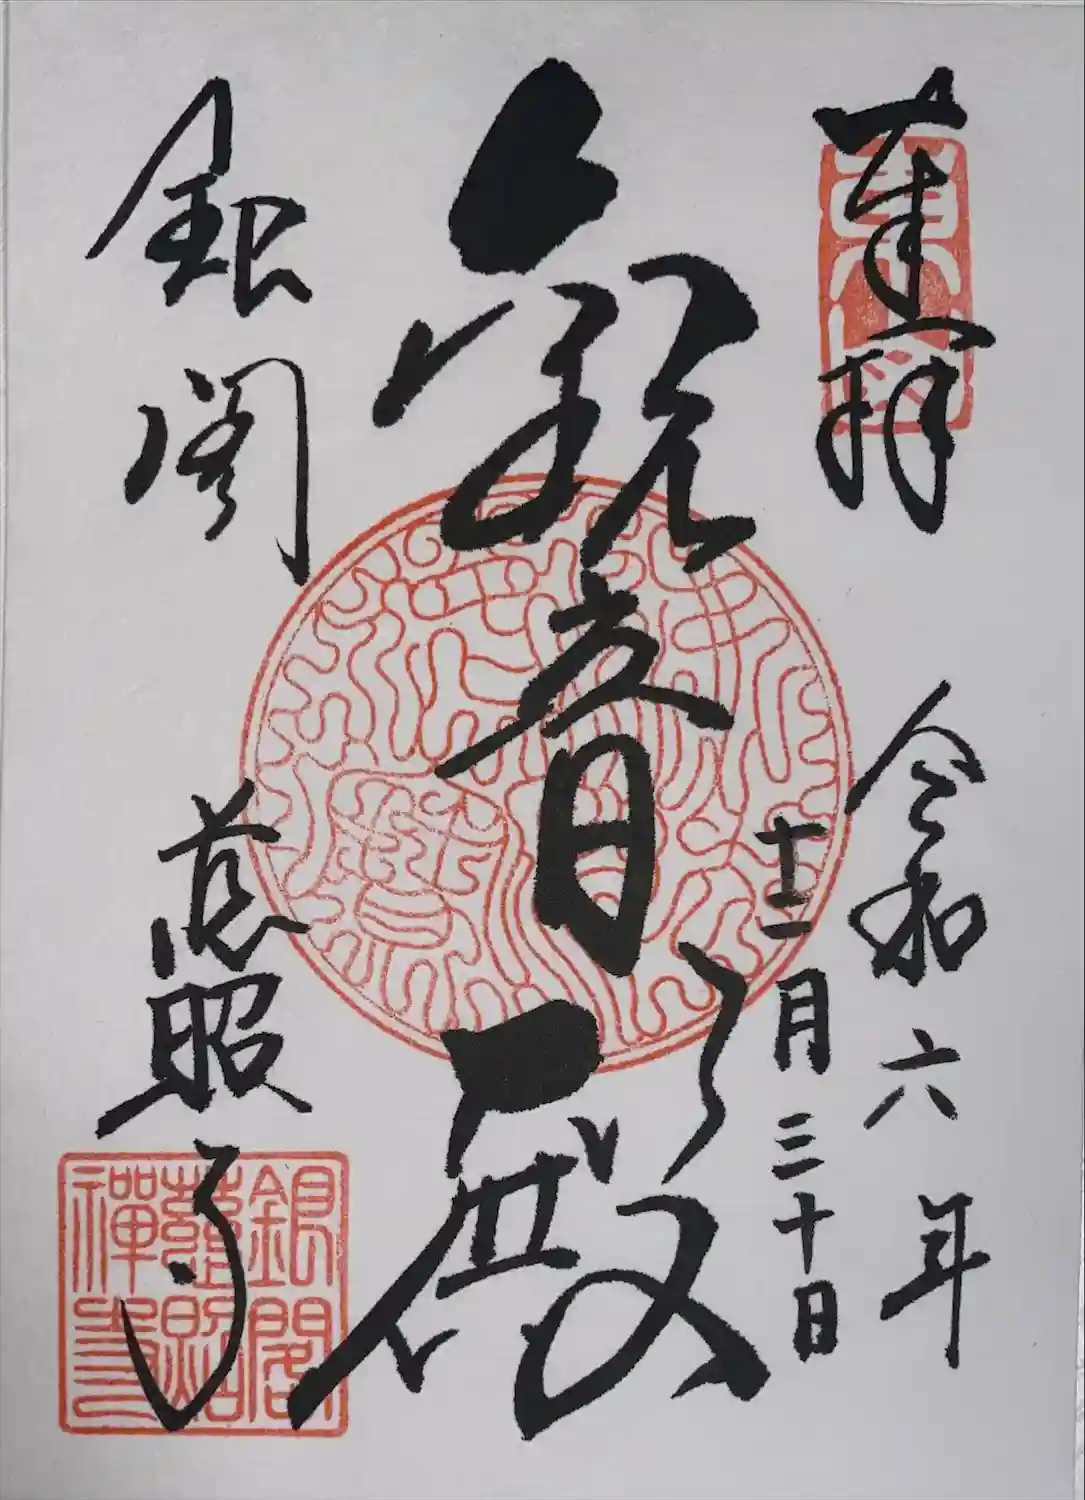 奉拝
令和六年
十二月三十日
観音殿
銀閣
慈照寺
東山
銀閣
慈照
禅寺